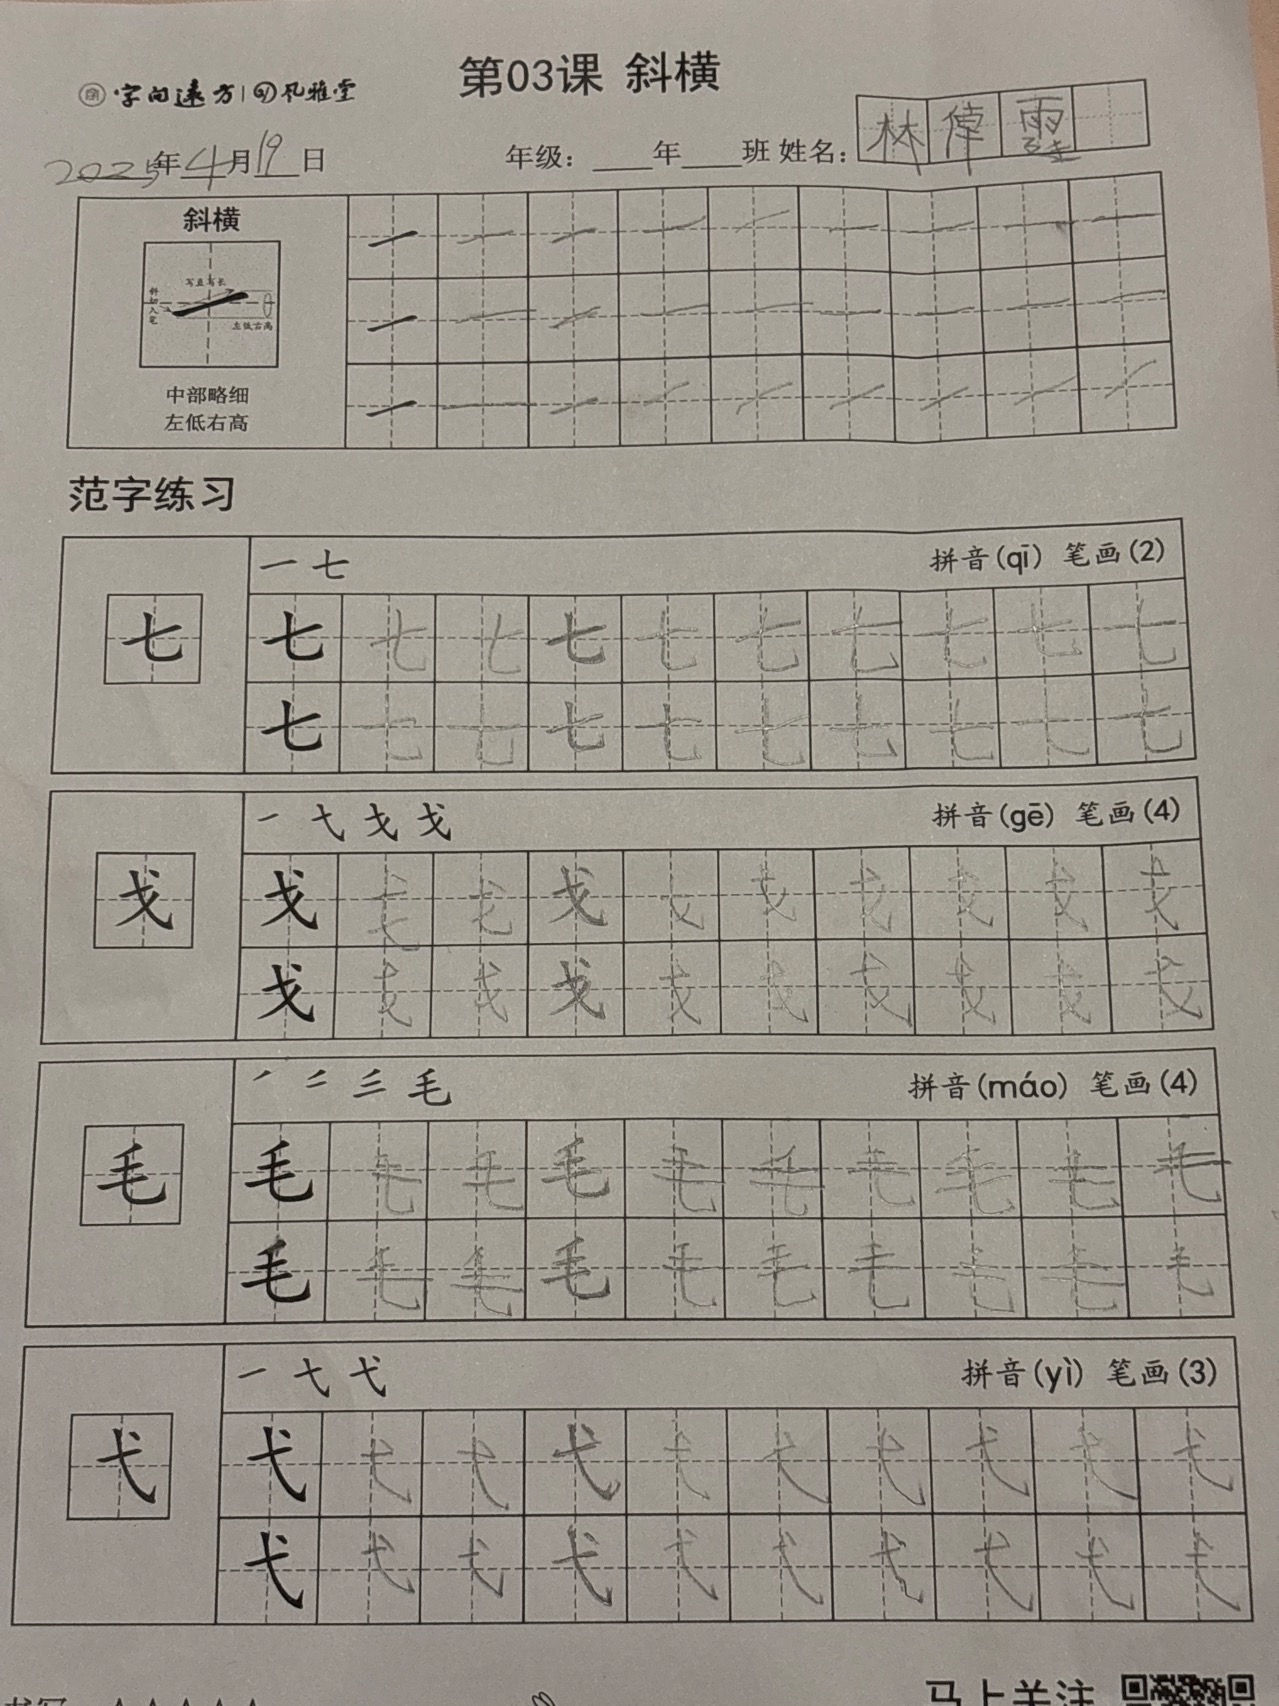 第03课 斜横
字向远方 | 风雅堂
2025年4月19日 年级：____年____班 姓名：林
斜横
写直写长
斜切入笔
左低右高
中部略细
左低右高
范字练习
一 七 拼音(qī) 笔画(2)
七 七 七 七 七 七 七 七 七 七 七
七 七 七 七 七 七 七 七 七 七
一 弋 戈 戈 拼音(gē) 笔画(4)
戈 戈 戈 戈 戈 戈 戈 戈 戈 戈 戈
戈 戈 戈 戈 戈 戈 戈 戈 戈 戈
拼音(máo) 笔画(4)
毛 毛 毛 毛 毛 毛 毛 毛 毛 毛 毛
毛 毛 毛 毛 毛 毛 毛 毛 毛 毛
一 弋 弋 拼音(yì) 笔画(3)
弋 弋 弋 弋 弋 弋 弋 弋 弋 弋 弋
弋 弋 弋 弋 弋 弋 弋 弋 弋 弋
书写 ☆☆☆☆☆ 马上关注